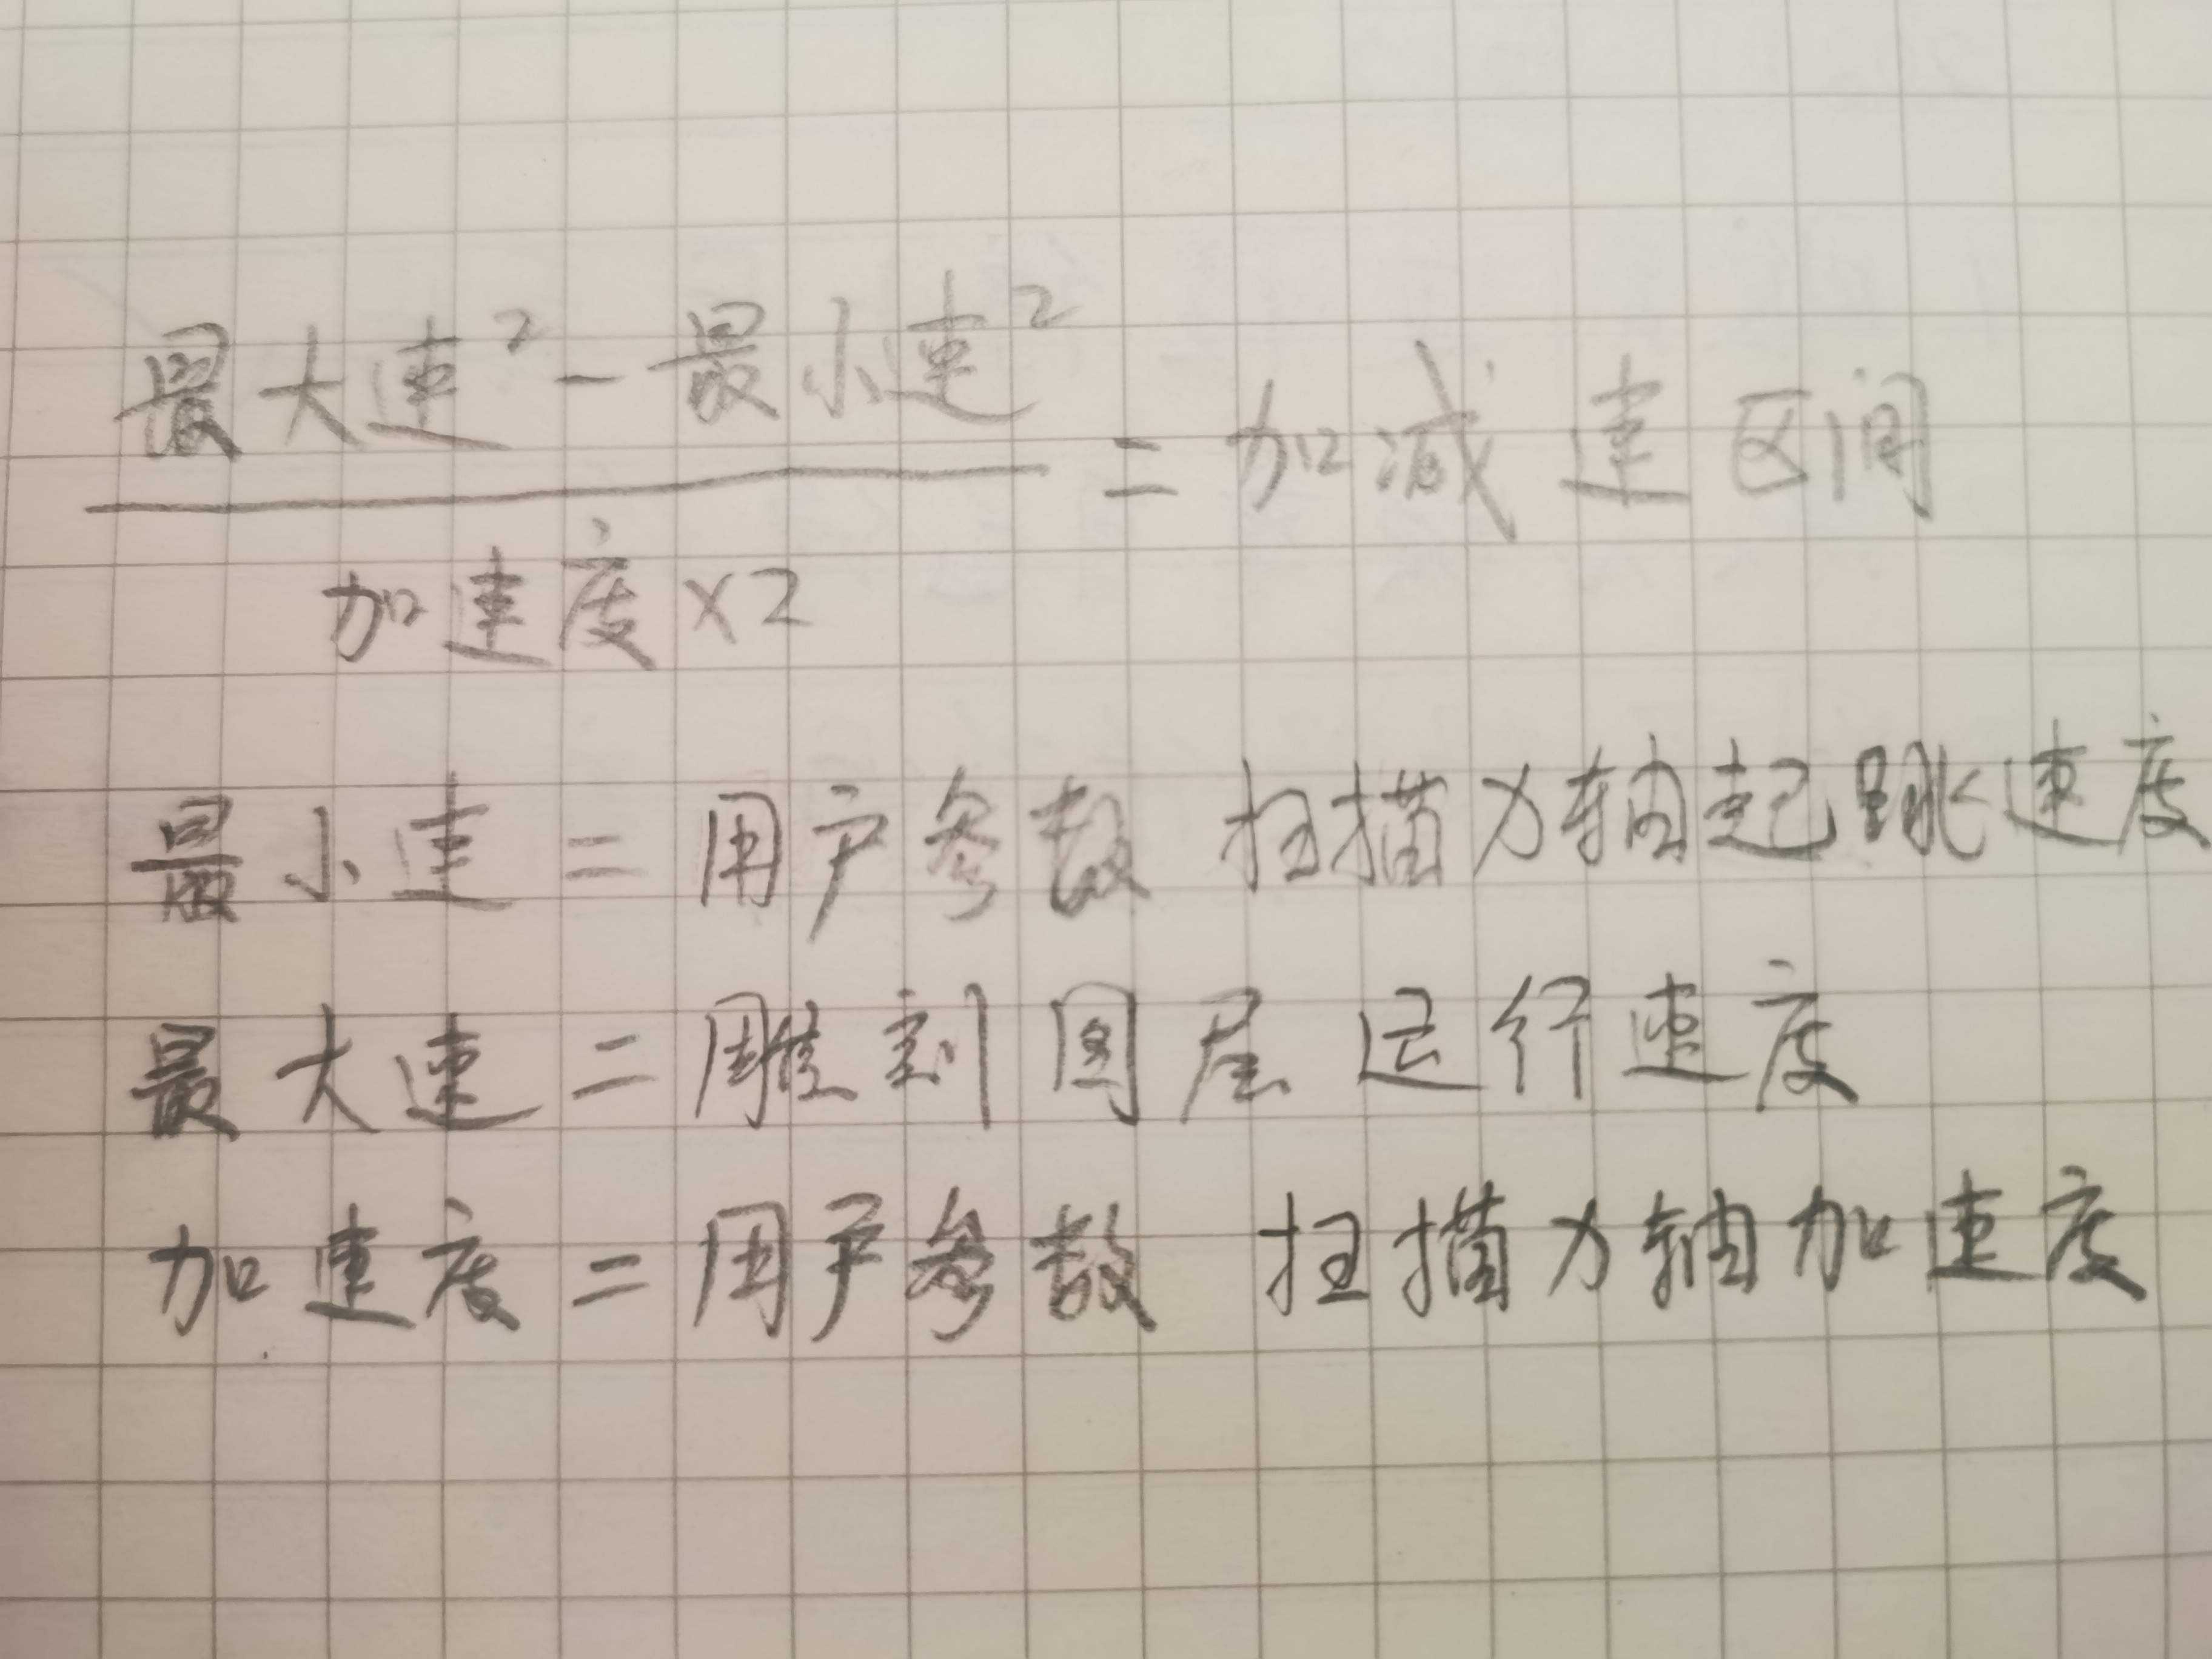 最大速² - 最小速² = 加减速区间
加速度×2
最小速 = 用户参数 扫描X轴起跳速度
最大速 = 雕刻图层运行速度
加速度 = 用户参数 扫描X轴加速度